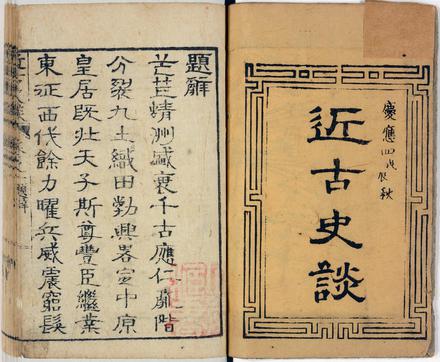 慶應四戊辰秋
近古史談
題辭
芒芒蜻洲盛衰千古應仁厲階
分裂九土織田勃興畧定中原
皇居既壯天子斯尊豊臣繼業
東征西伐餘力曜兵威震窮髮